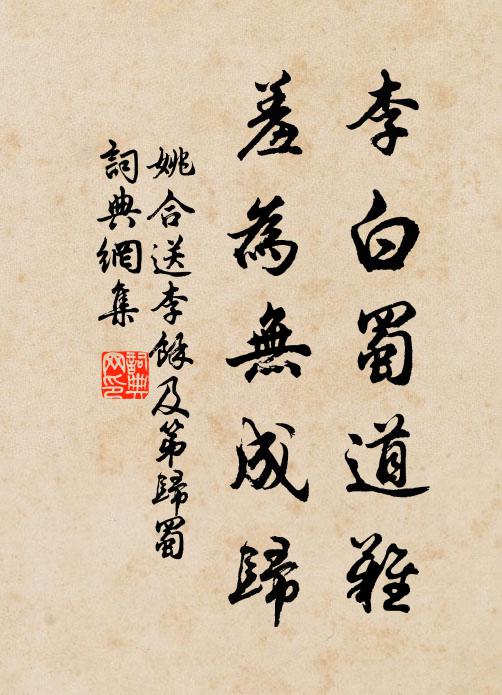 李白蜀道難
羞為無成歸
姚合送李餘及第歸蜀
詞典網集
詞典
网印